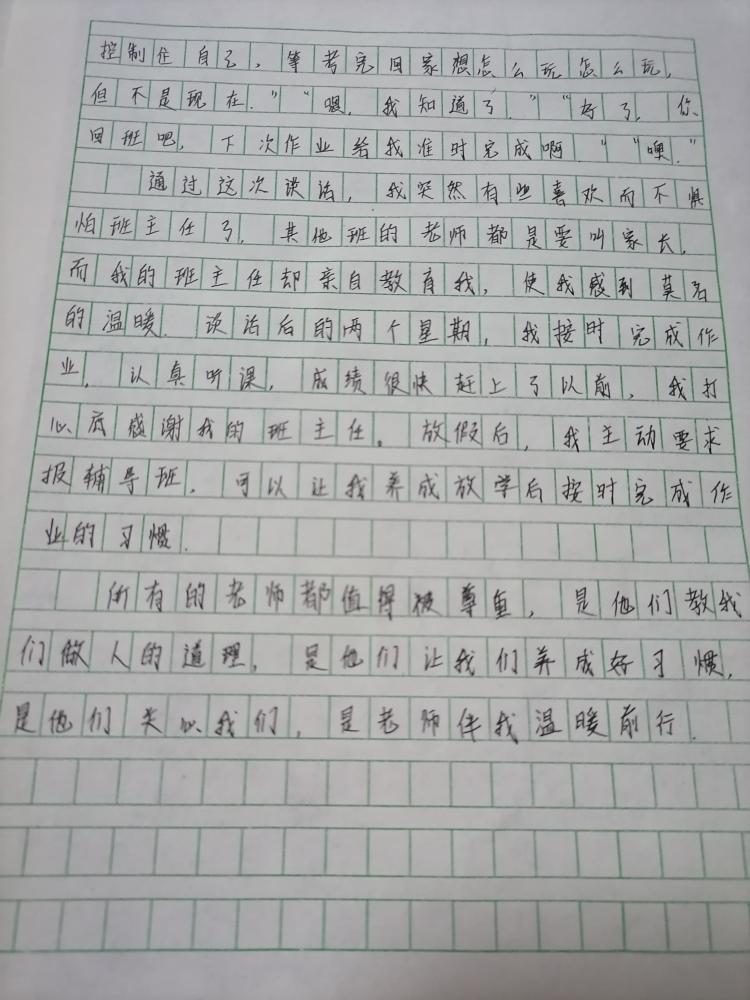 控制住自己，等考完回家想怎么玩怎么玩，
但不是现在．”“嗯．我知道了．”“好了．你
回班吧，下次作业给我准时完成啊．”“噢．”
通过这次谈话，我突然有些喜欢而不惧
怕班主任了．其他班的老师都是要叫家长，
而我的班主任却亲自教育我，使我感到莫名
的温暖．谈话后的两个星期，我按时完成作
业，认真听课，成绩很快赶上了以前，我打
心底感谢我的班主任。放假后，我主动要求
报辅导班，可以让我养成放学后按时完成作
业的习惯．
所有的老师都值得被尊重，是他们教我
们做人的道理，是他们让我们养成好习惯，
是他们关心我们，是老师伴我温暖前行．